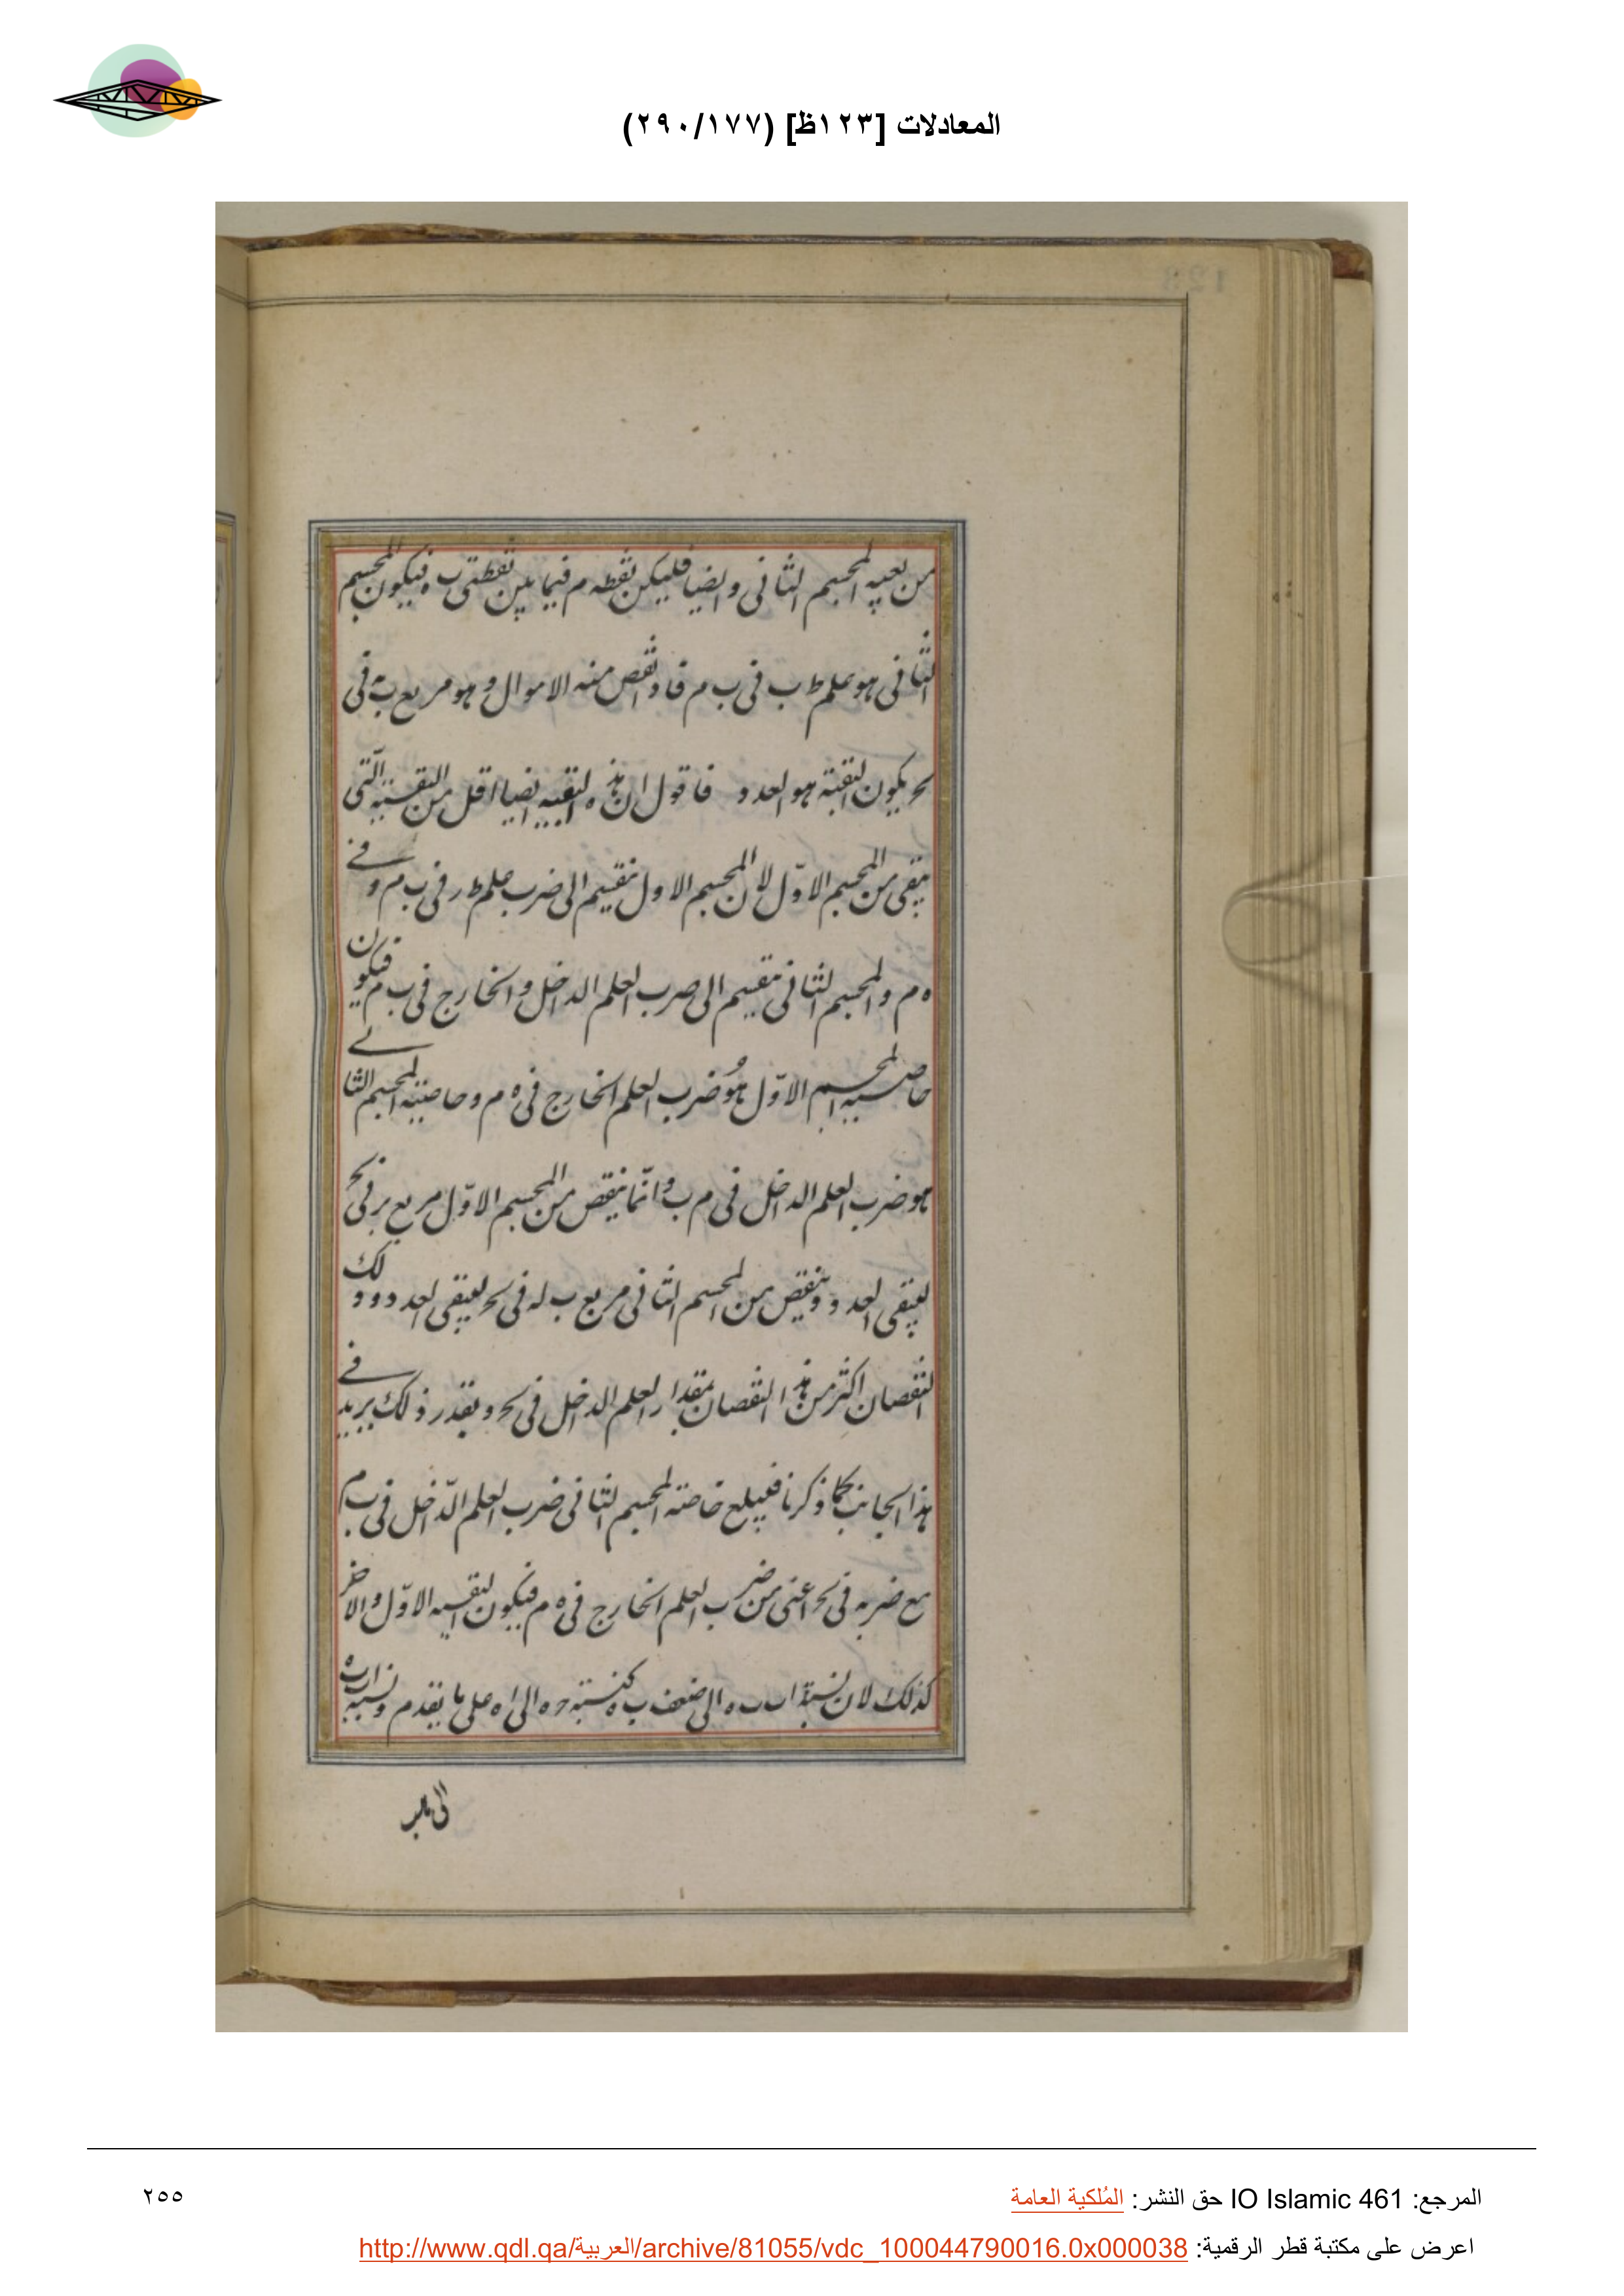 المعادلات [١٢٣ظ] (٢٩٠/١٧٧)
من بقيه المجسم الثانى وايضا فليكن نقطه م فيما بين نقطتى ب ه فيكون المجسم
الثانى هو علم ط ب فى ب م فاذا نقص منه الاموال وهو مربع ب ه فى
ى ح يكون البقية هو العدد فاقول ان هذه البقيه ايضا اقل من البقيته التى
تبقى من المجسم الاوّل لان المجسم الاول ينقسم الى ضرب علم ط ر فى ب م وفى
ه م والمجسم الثانى ينقسم الى ضرب العلم الداخل والخارج فى ب م فيكون
خاصيه المجسم الاوّل هو ضرب العلم الخارج فى ه م وخاصيته المجسم الثانى
هو ضرب العلم الداخل فى م ب وانّما ينقص من المجسم الاوّل مربع ب ر فى ى ح
ليبقى العدد وينقص من المجسم الثانى مربع ب له فى ى ح ليبقى العدد وذلك
النقصان اكثر من هذا النقصان بمقدار العلم الداخل فى ى ح وبقدر ذلك يزيد فى
هذا الجانب كما ذكرنا فيبلغ خاصته المجسم الثانى ضرب العلم الدّاخل فى ب م
مع ضربه فى ى ح اعنى من ضرب العلم الخارج فى ه م فيكون البقيه الاوّل والاخر
كذلك لان نسبة ا ب ب ه الى ضعف ب ه كنسبته ح ه الى ا ه على ما يقدم ونسبه ا ب ب ه
الى
المرجع: IO Islamic 461 حق النشر: المُلكية العامة
٢٥٥
اعرض على مكتبة قطر الرقمية: http://www.qdl.qa/العربية/archive/81055/vdc_100044790016.0x000038